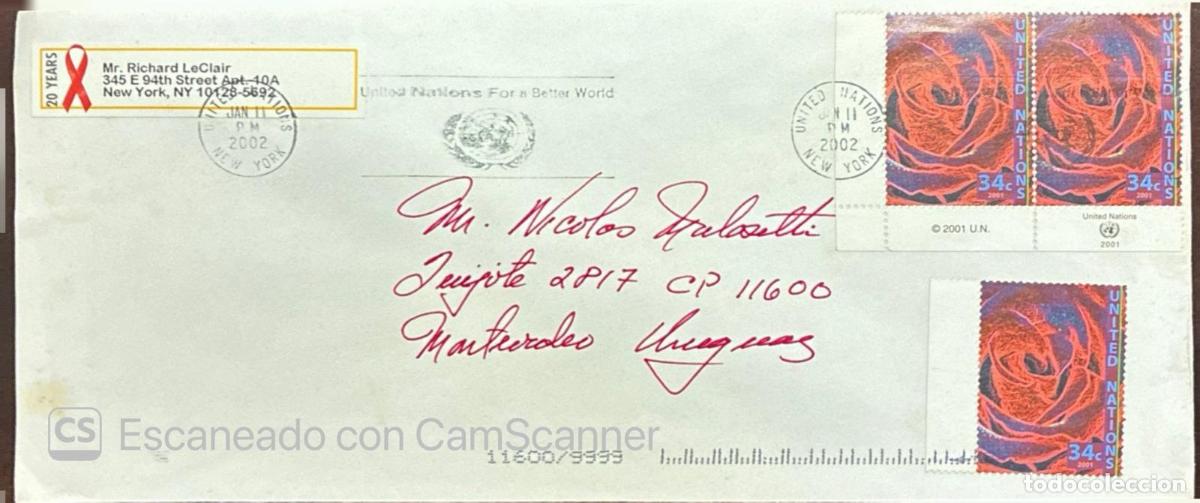 20 YEARS
Mr. Richard LeClair
345 E 94th Street Apt. 10A
New York, NY 10128-5692
UNITED NATIONS
JAN 11
PM
2002
NEW YORK
United Nations For a Better World
UNITED NATIONS
JAN 11
PM
2002
NEW YORK
UNITED NATIONS
34c
2001
UNITED NATIONS
34c
2001
© 2001 U.N.
United Nations
2001
Mr. Nicolas
2817 CP 11600
Montevideo Uruguay
UNITED NATIONS
34c
2001
CS Escaneado con CamScanner
11600/9999
todocoleccion